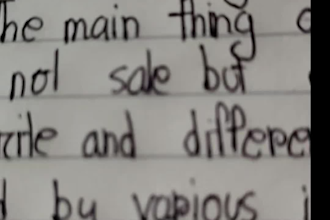 he main thing
not sale but
and differe
by various